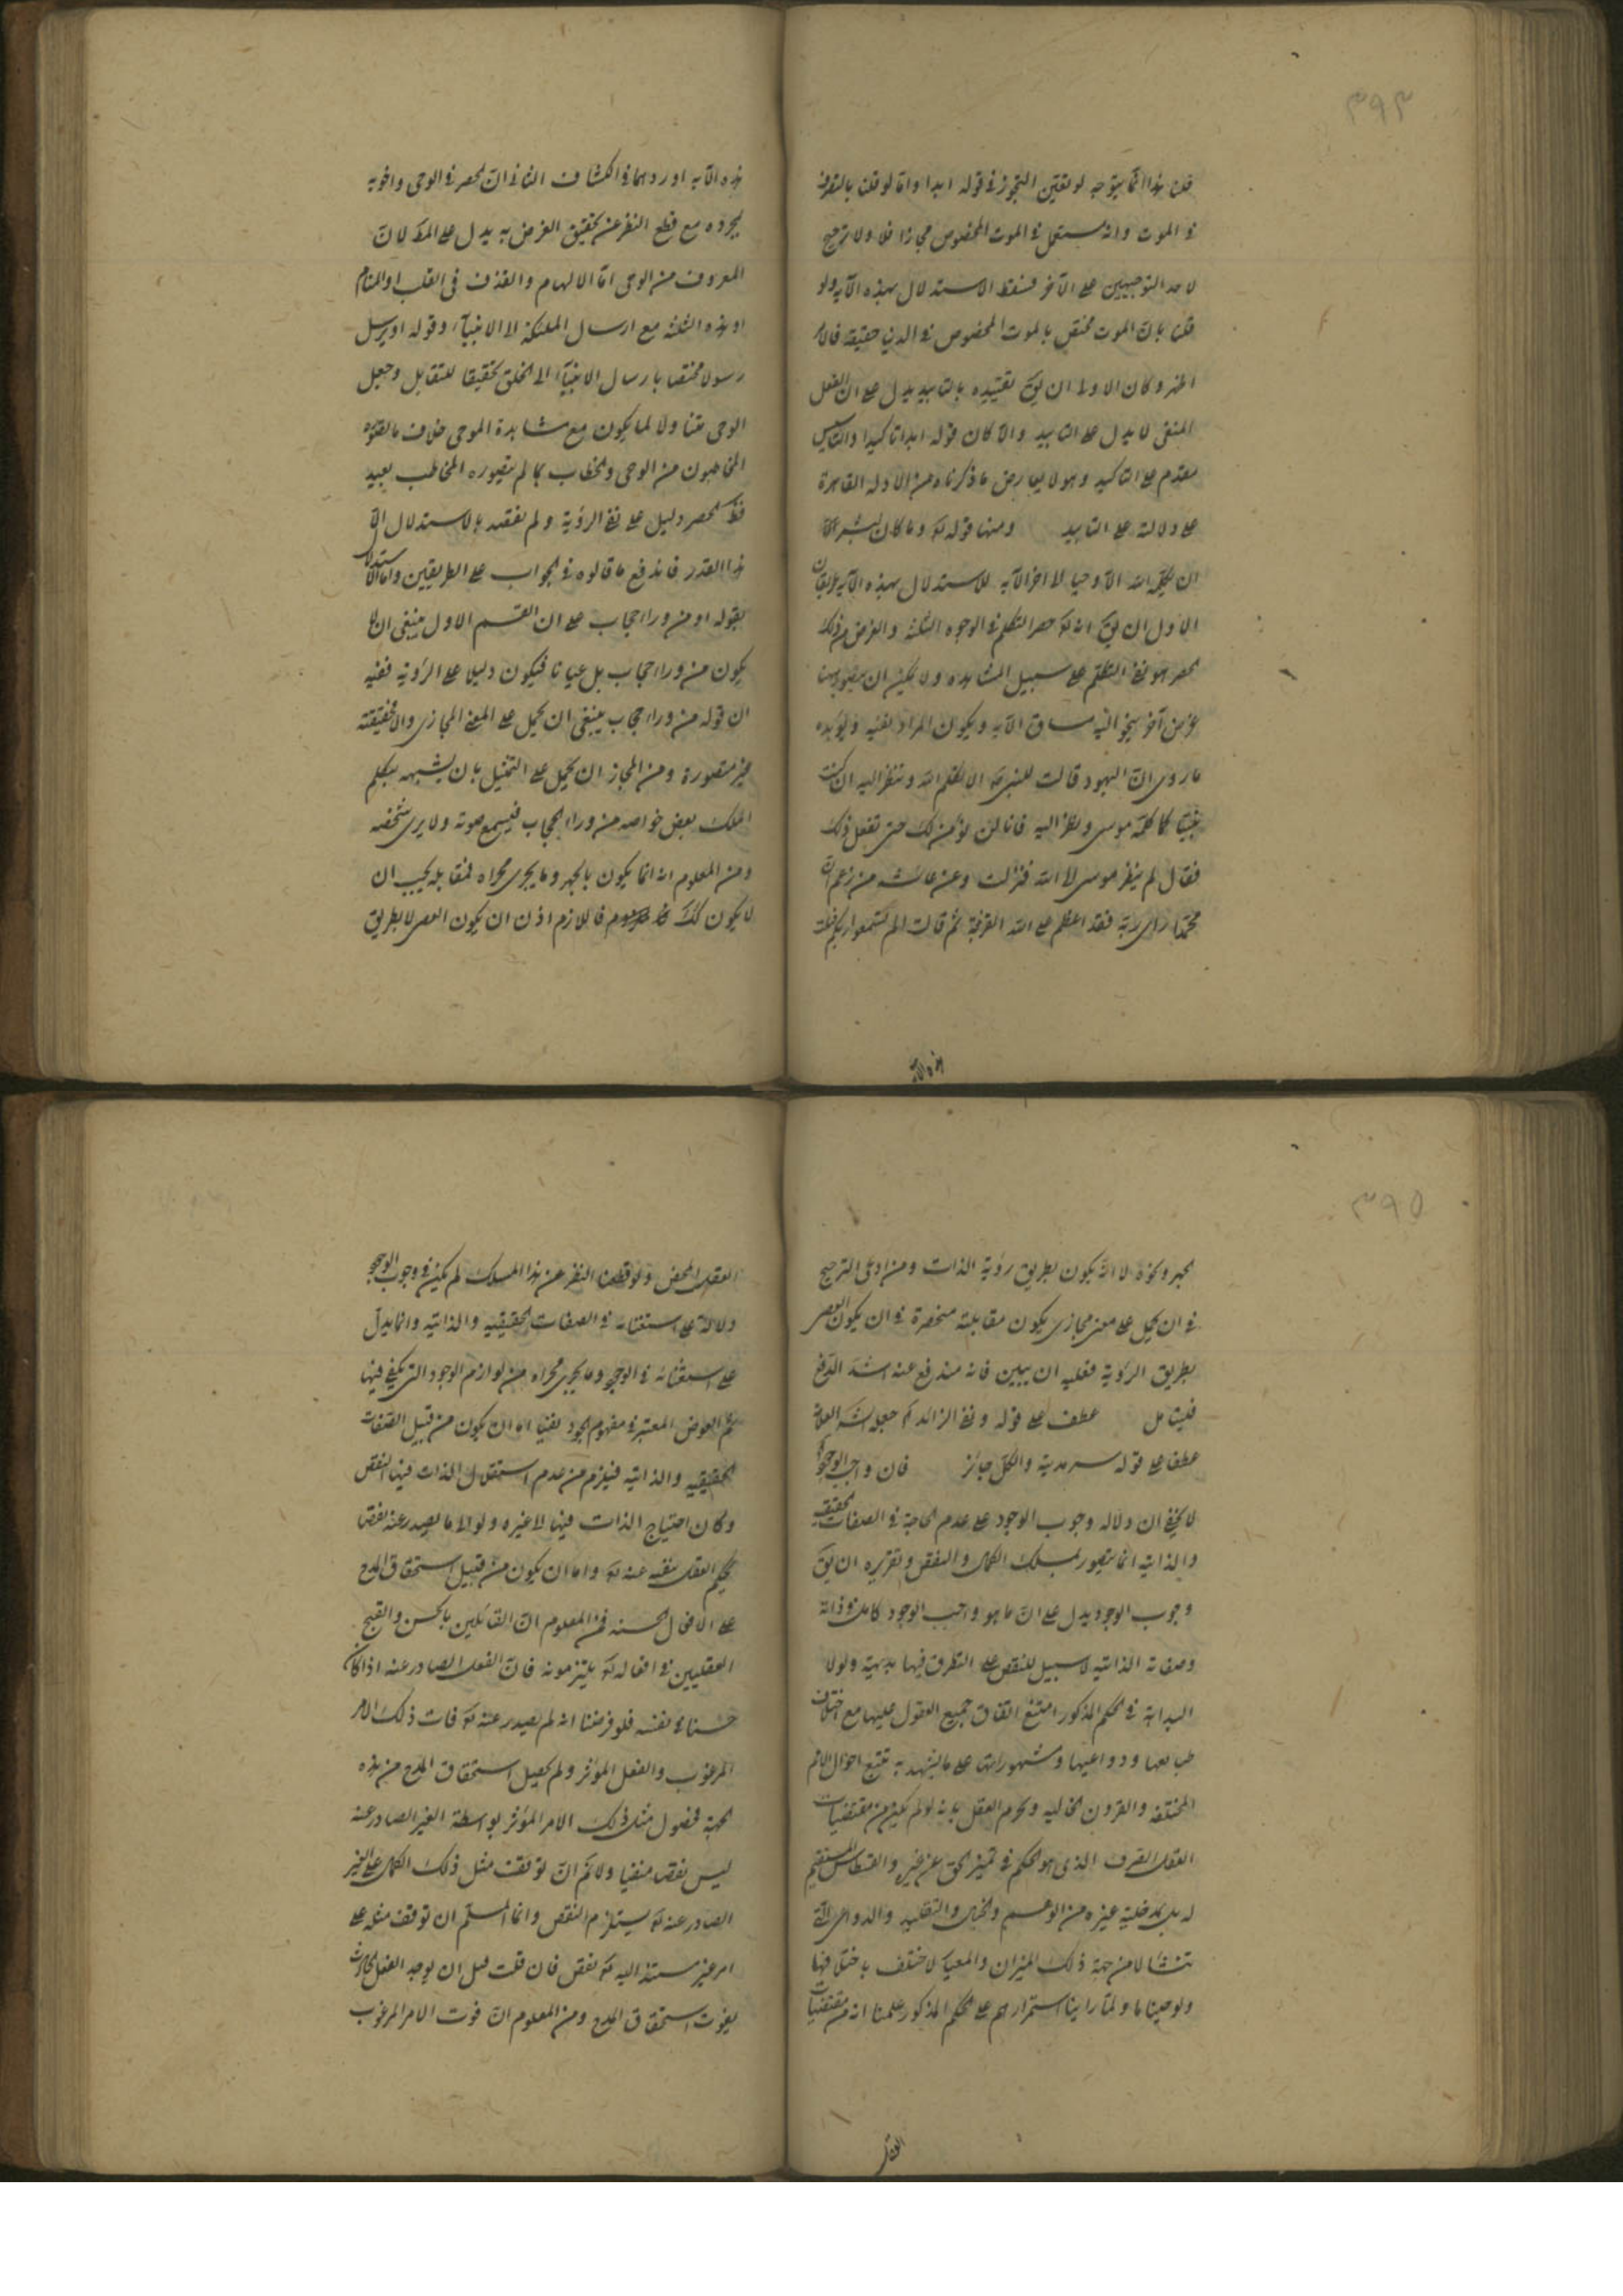 ٣٩٣
قلنا هذا انما يتوجه لو تعين التجوز فى قوله ابدا واما لو قلنا بالتصرف
فى الموت وانه مستعمل فى الموت المخصوص مجازا فلا ولا ترجيح
لاحد التوجيهين على الآخر فسقط الاستدلال بهذه الآية ولو
قلنا بان الموت مختص بالموت المخصوص فى الدنيا حقيقة فالامر
اظهر وكان الاولى ان يق تقييده بالتابيد يدل على ان الفعل
المنفى لا يدل على التابيد والا كان قوله ابدا تاكيدا والتاسيس
مقدم على التاكيد وهو لا يعارض ما ذكرناه من الادلة القاهرة
على دلالته على التابيد ومنها قوله تعه وما كان لبشر الآية
ان يكلمه الله الا وحيا الى اخر الآية للاستدلال بهذه الآية طريقان
الاول ان يق انه تعه حصر التكلم فى الوجوه الثلثة والغرض من ذلك
الحصر هو نفى التكلم على سبيل المشاهدة ولا يمكن ان يتصور هنا
غرض آخر ينجو اليه مساق الآية ويكون المراد نفيه ويؤيده
ما روى ان اليهود قالت للنبى ص الا تكلم الله وتنظر اليه ان كنت
نبيا كما كلمه موسى ونظر اليه فانا لن نؤمن لك حتى تفعل ذلك
فقال لم ينظر موسى الى الله فنزلت وعن عائشه من زعم ان
محمدا راى ربه فقد اعظم على الله الفرية ثم قالت الم تسمعوا ربكم فتلت
هذه الآية
هذه الآية اوردهما فى الكشاف الثانى ان الحصر فى الوحى واخويه
بمجرده مع قطع النظر عن تحقيق الغرض به يدل على المط لان
المعروف من الوحى اما الالهام والقذف فى القلب او المنام
او هذه الثلثة مع ارسال الملئكة الى الانبيآء وقوله او يرسل
رسولا مختصا بارسال الانبيآء الى الخلق تحقيقا للتقابل وجعل
الوحى متناولا لما يكون مع مشاهدة الموحى خلاف ما يتصوره
المخاطبون من الوحى والخطاب بما لم يتصوره المخاطب بعيد
فظ الحصر دليل على نفى الرؤية ولم نقصد بالاستدلال الا
هذا القدر فاندفع ما قالوه فى الجواب على الطريقين واما الاستدلال
بقوله او من وراء حجاب على ان القسم الاول ينبغى ان لا
يكون من وراء حجاب بل عيانا فيكون دليلا على الرؤية ففيه
ان قوله من وراء حجاب ينبغى ان يحمل على المعنى المجازى والا فحقيقته
غير متصورة ومن المجاز ان يحمل على التمثيل بان يشبهه بتكلم
الملك بعض خواصه من وراء الحجاب فيسمع صوته ولا يرى شخصه
ومن المعلوم انه انما يكون بالجهر وما يجرى مجراه فمقابله يجب ان
لا يكون كك فاللازم اذن ان يكون العصر لا بطريق
٣٩٥
الجهر ونحوه لا انه يكون بطريق رؤية الذات ومن ادعى الترجيح
فى ان يحمل على معنى مجازى يكون مقابلته منحصرة فى ان يكون العصر
بطريق الرؤية فعليه ان يبين فانه مندفع عنه اشد الدفع
فليتامل عطف على قوله ونفى الزائد
عطفا على قوله سرمدية والكل جائز فان واجب الوجود
لا يخفى ان دلالة وجوب الوجود على عدم الحاجة فى الصفات الحقيقية
والذاتية انما يتصور بمسلك الكمال والنقص وتقريره ان يق
وجوب الوجود يدل على ان ما هو واجب الوجود كامل فى ذاته
وصفاته الذاتية لا سبيل للنقص على التطرق فيها بديهية ولولا
البداهة فى الحكم المذكور امتنع اتفاق جميع العقول عليها مع اختلاف
طبائعها ودواعيها وشهوراتها على ما يشهد به تتبع احوال الامم
المختلفة والقرون الخالية وبحرم العقل بانه لو لم يكن من مقتضيات
العقل الصرف الذى هو الحكم فى تميز الحق عن غيره والقسطاس المستقيم
له بل بمدخلية غيره من الوهم والخيال والتقليد والدواعى التى
تنشا لا من جهة ذلك الميزان والمعيار لاختلف باختلافها
ولو حينا ما ولما راينا استمرارهم على الحكم المذكور علمنا انه من مقتضيات
العقل
العقل المحض ولو قطعنا النظر عن هذا المسلك لم يكن فى وجوب الوجود
دلالة على استغنائه فى الصفات الحقيقية والذاتية وانما يدل
على استغنائه فى الوجود وما يجرى مجراه من لوازم الوجود التى يكفى فيها
ثم العوض المعتبر فى مفهوم الجود نفيا اما ان يكون من قبيل الصفات
الحقيقية والذاتية فيلزم من عدم استقلال الذات فيها النقص
وكان احتياج الذات فيها الى غيره ولو الى ما يصدر عنه نقصا
يحكم العقل بنفيه عنه تعه واما ان يكون من قبيل استحقاق المدح
على الافعال الحسنة فمن المعلوم ان القائلين بالحسن والقبح
العقليين فى افعاله تعه يلتزمونه فان الفعل الصادر عنه اذا كان
حسنا فى نفسه فلو فرضنا انه لم يصدر عنه تعه فات ذلك الامر
المرغوب والفعل المؤثر ولم يحصل استحقاق المدح من هذه
الجهة فحصول مثل ذلك الامر المؤثر بواسطة الغير الصادر عنه
ليس نقصا منفيا ولا نم ان توقف مثل ذلك الكمال على الغير
الصادر عنه تعه يستلزم النقص وانما المسلم ان توقف مثله على
امر غير مستند اليه تعه نقص فان قلت قبل ان يوجد الفعل الحادث
يفوت استحقاق المدح ومن المعلوم ان فوت الامر المرغوب